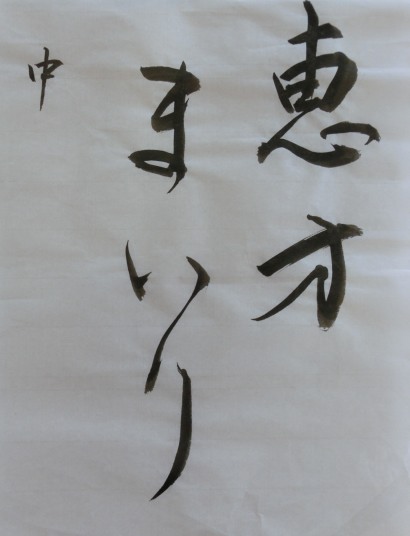 恵方
まいり
申